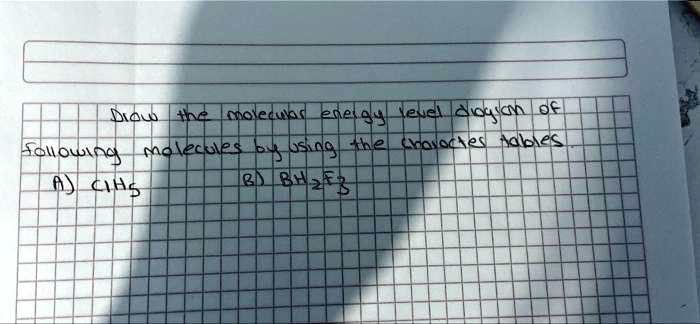 Draw the molecular energy level diagram of
following molecules by using the character tables.
A) ClH5 B) BH2F3